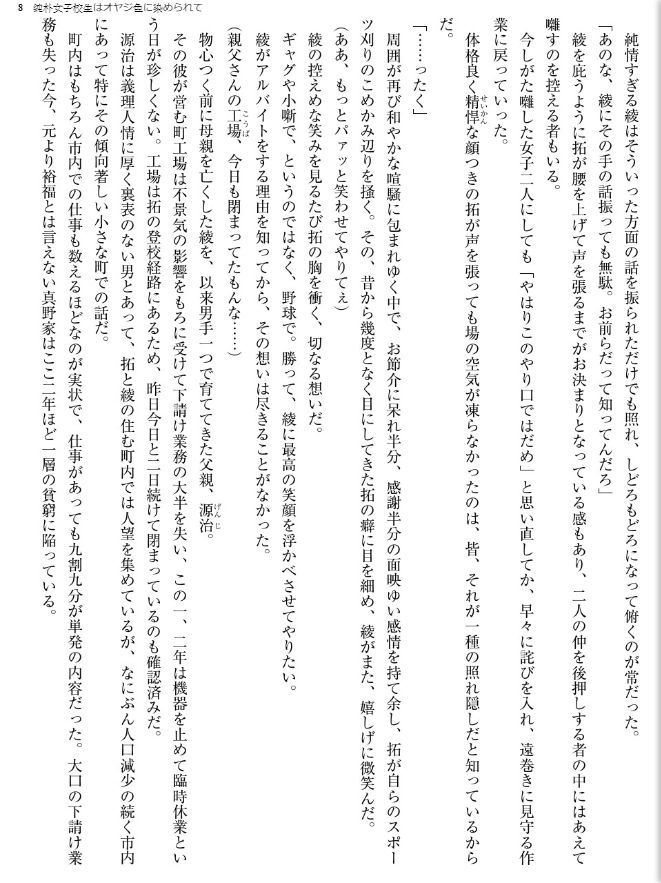 8 純朴女子校生はオヤジ色に染められて
純情すぎる綾はそういった方面の話を振られただけでも照れ、しどろもどろになって俯くのが常だった。
「あのな、綾にその手の話振っても無駄。お前らだって知ってんだろ」
綾を庇うように拓が腰を上げて声を張るまでがお決まりとなっている感もあり、二人の仲を後押しする者の中にはあえて
囃すのを控える者もいる。
今しがた囃した女子二人にしても「やはりこのやり口ではだめ」と思い直してか、早々に詫びを入れ、遠巻きに見守る作
業に戻っていった。
体格良く精悍な顔つきの拓が声を張っても場の空気が凍らなかったのは、皆、それが一種の照れ隠しだと知っているから
だ。
「……ったく」
周囲が再び和やかな喧騒に包まれゆく中で、お節介に呆れ半分、感謝半分の面映ゆい感情を持て余し、拓が自らのスポー
ツ刈りのこめかみ辺りを掻く。その、昔から幾度となく目にしてきた拓の癖に目を細め、綾がまた、嬉しげに微笑んだ。
(ああ、もっとパァッと笑わせてやりてぇ)
綾の控えめな笑みを見るたび拓の胸を衝く、切なる想いだ。
ギャグや小噺で、というのではなく、野球で。勝って、綾に最高の笑顔を浮かべさせてやりたい。
綾がアルバイトをする理由を知ってから、その想いは尽きることがなかった。
(親父さんの工場、今日も閉まってたもんな……)
物心つく前に母親を亡くした綾を、以来男手一つで育ててきた父親、源治。
その彼が営む町工場は不景気の影響をもろに受けて下請け業務の大半を失い、この一、二年は機器を止めて臨時休業とい
う日が珍しくない。工場は拓の登校経路にあるため、昨日今日と二日続けて閉まっているのも確認済みだ。
源治は義理人情に厚く裏表のない男とあって、拓と綾の住む町内では人望を集めているが、なにぶん人口減少の続く市内
にあって特にその傾向著しい小さな町での話だ。
町内はもちろん市内での仕事も数えるほどなのが実状で、仕事があっても九割九分が単発の内容だった。大口の下請け業
務も失った今、元より裕福とは言えない真野家はここ二年ほど一層の貧窮に陥っている。